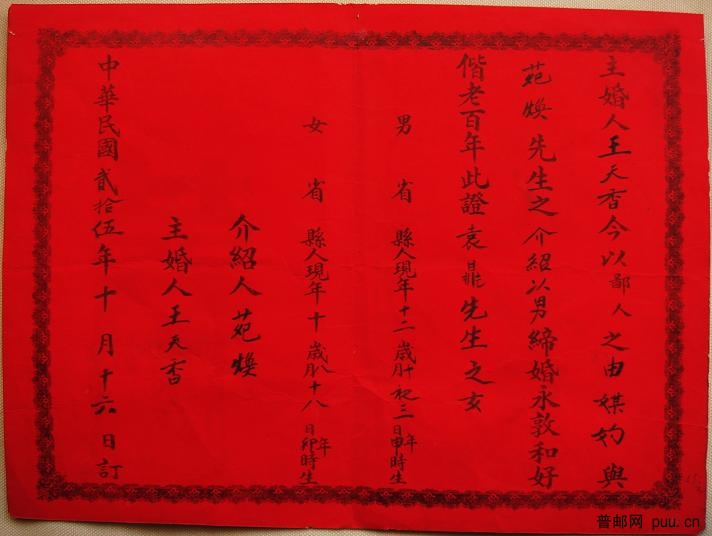 主婚人王天香今以鄙人之由媒妁與
苑煥先生之介紹以男締婚永敦和好
偕老百年此證袁鼎先生之女
男 省 縣人現年十二歲 月十 初三日申時生 年
女 省 縣人現年十 歲 月八 十八日卯時生 年
介紹人苑煥
主婚人王天香
中華民國貳拾伍年十月十六日訂
普邮网 puu.cn